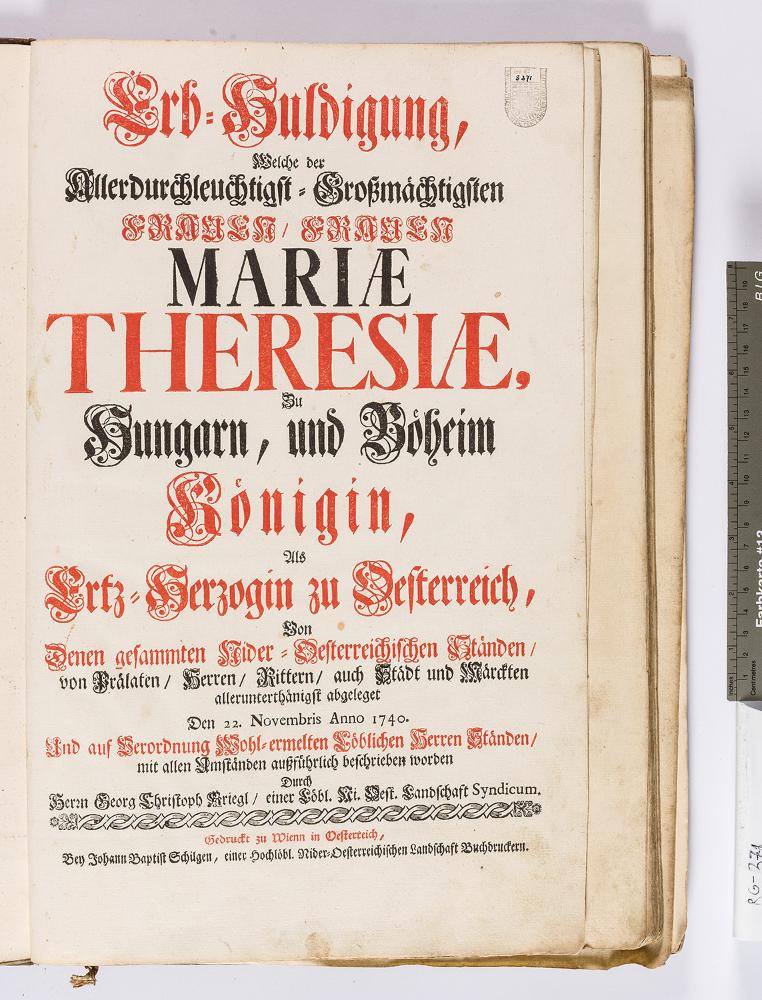 Erb-Huldigung,
Welche der
Allerdurchleuchtigst-Großmächtigsten
FRAUEN/ FRAUEN
MARIÆ
THERESIÆ,
Zu
Hungarn, und Böheim
Königin,
Als
Ertz-Herzogin zu Oesterreich,
Von
Denen gesammten Nider-Oesterreichischen Ständen/
von Prälaten/ Herren/ Rittern/ auch Städt und Märckten
allerunterthänigst abgeleget
Den 22. Novembris Anno 1740.
Und auf Verordnung Wohl-ermelten Löblichen Herren Ständen/
mit allen Umständen außführlich beschrieben worden
Durch
Herrn Georg Christoph Kriegl/ einer Löbl. Ni. Oest. Landschaft Syndicum.
Gedruckt zu Wienn in Oesterreich,
Bey Johann Baptist Schilgen, einer Hochlöbl. Nider-Oesterreichischen Landschaft Buchdruckern.
Farbkarte #13
Inches
Centimetres
B.I.G.
RG-271